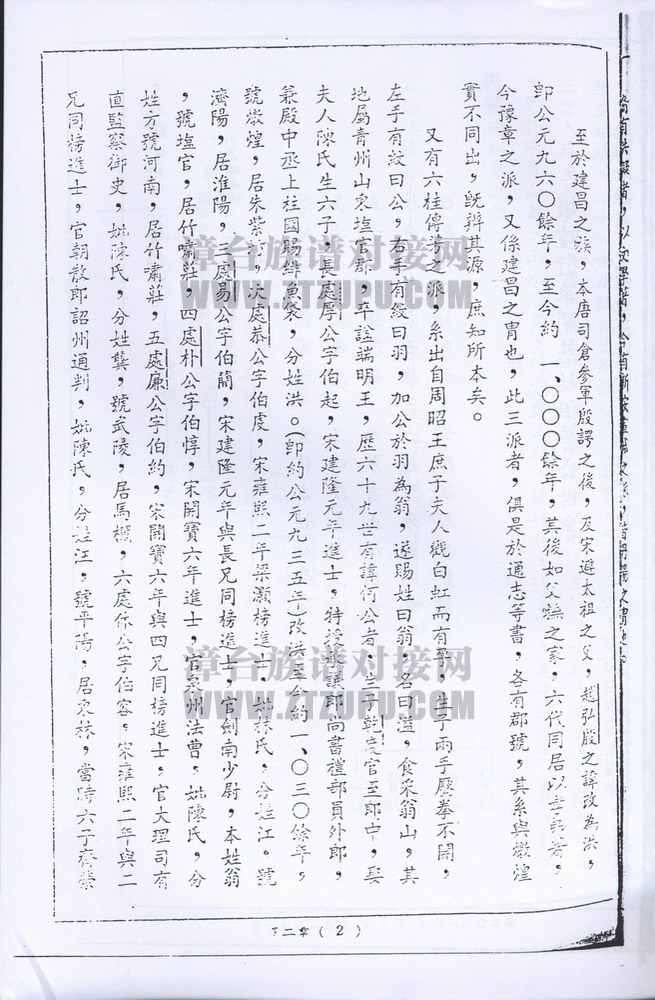 至於建昌之族,本唐司倉參軍殷諤之後,及宋避太祖之父,趙弘殷之諱改為洪,
即公元九六〇餘年,至今約一、〇〇〇餘年,其後如父之家,六代同居以孝義著,
今豫章之派,又係建昌之冑也,此三派者,俱是於通志等書,各有郡號,其系與燉煌
實不同出,既辨其源,庶知所本矣。
又有六桂傳芳之派,系出自周昭王庶子夫人觀白虹而有孕,生子兩手壓拳不開,
左手有紋曰公,右手有紋曰羽,加公於羽為翁,遂賜姓曰翁,名曰溢,食采翁山,其
地屬青州山東塩官郡,卒諡端明王,歷六十九世有諱何公者,生子乾度官至郎中,娶
夫人陳氏生六子,長處厚公字伯起,宋建隆元年進士,特授承議郎尚書禮部員外郎,
兼殿中丞上柱國賜緋魚袋,分姓洪。(即約公元九三五年)改洪至今約一、〇三〇餘年,
號燉煌,居朱紫,次處恭公字伯虔,宋雍熙二年梁灝榜進士,妣林氏,分姓江。號
濟陽,居淮陽,三處易公字伯簡,宋建隆元年與長兄同榜進士,官劍南少尉,本姓翁
,號塩官,居竹嘯莊,四處朴公字伯惇,宋開寶六年進士,官泉州法曹,妣陳氏,分
姓方號河南,居竹嘯莊,五處廉公字伯約,宋開寶六年與四兄同榜進士,官大理司有
直監察御史,妣陳氏,分姓龔,號武陵,居馬,六處休公字伯容。宋雍熙二年與二
兄同榜進士,官朝散郎詔州通判,妣陳氏,分姓江,號平陽,居衆林,當時六子齊榮
二章(2)
漳台族谱对接网
WWW.ZTZUPU.COM
漳台族谱对接网
WWW.ZTZUPU.COM